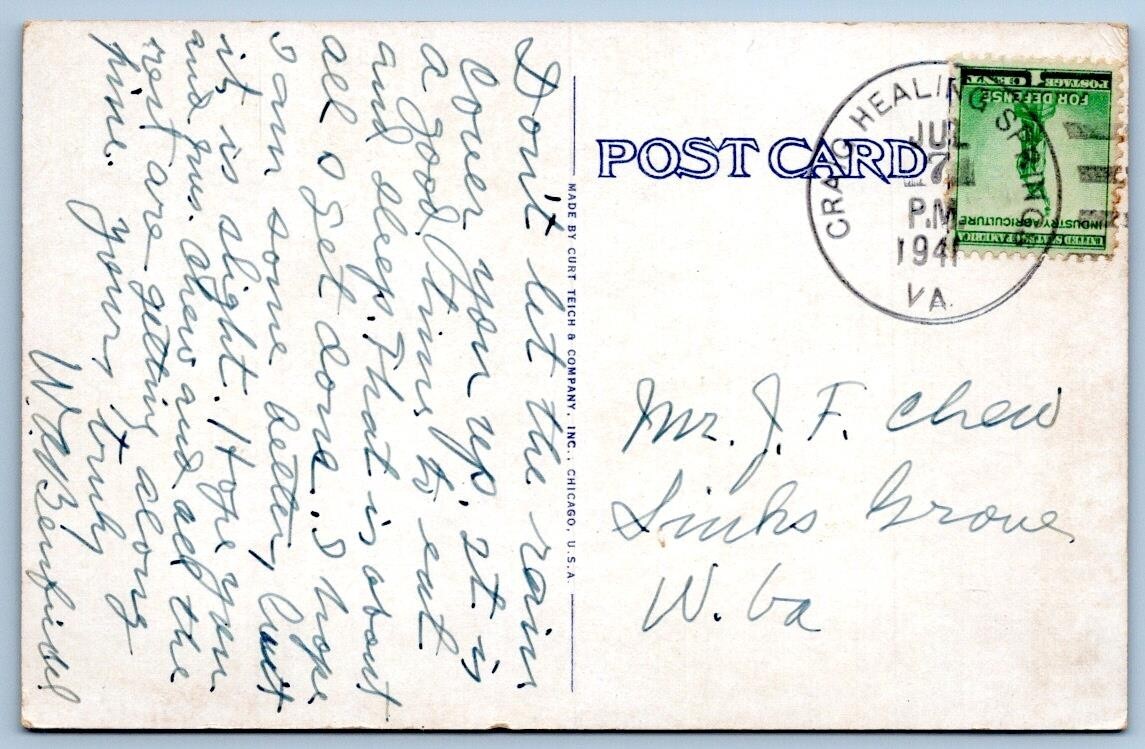 Don't let the rain
cover you up. It is
a good time to eat
and sleep. That is about
all I get done. I hope
I am some better, but
it is slight. Hope you
and Mrs. Chew and all the
rest are getting along
fine.
Yours truly
W.
MADE BY CURT TEICH & COMPANY, INC., CHICAGO, U.S.A.
POST CARD
CRAIG HEALING SPRINGS
JUL
7
P.M
1941
VA.
1 CENT 1
POSTAGE
FOR DEFENSE
INDUSTRY AGRICULTURE
UNITED STATES OF AMERICA
Mr. J. F. Chew
Sinks Grove
W. Va